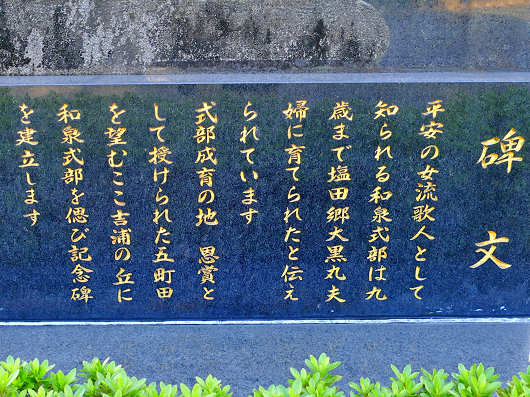 碑文
平安の女流歌人として
知られる和泉式部は九
歳まで塩田郷大黒丸夫
婦に育てられたと伝え
られています
式部成育の地　恩賞と
して授けられた五町田
を望むここ吉浦の丘に
和泉式部を偲び記念碑
を建立します